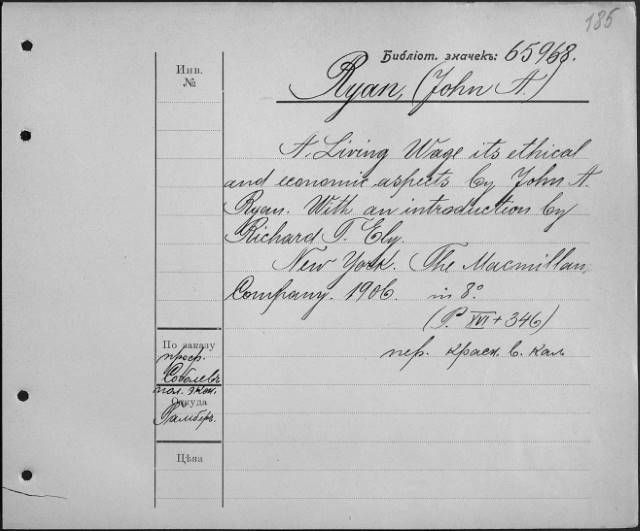 185
Библіот. значекъ: 65968.
Инв.
№
Ryan, (John A.)
A. Living Wage its ethical
and economic aspects by John A.
Ryan. With an introduction by
Richard T. Ely.
New York. The Macmillan
Company. 1906. in 8°.
(P. XVI + 346)
пер. красн. в. кал.
По заказу
проф.
Соболевъ
пол. экон.
Откуда
Рамберъ.
Цѣна